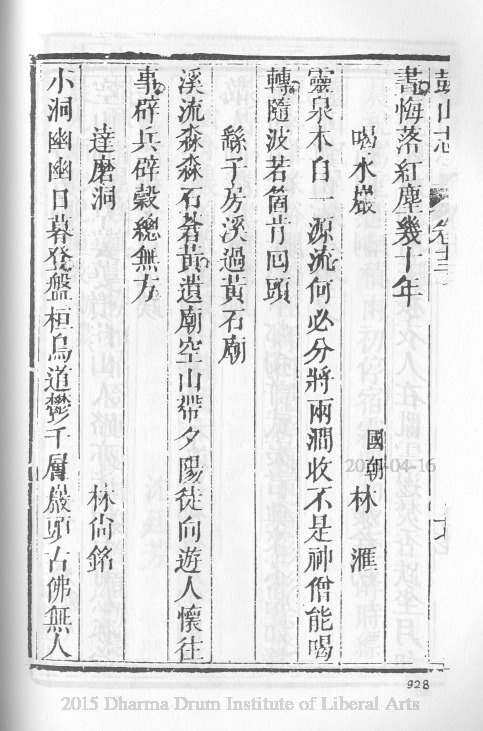 鼓山志 卷十三
書悔落紅塵幾十年
喝水巖 國朝 林滙
靈泉本自一源流何必分將兩澗收不是神僧能喝
轉隨波若箇肯回頭
繇子房溪過黃石廟
溪流森森石蒼黃遺廟空山帶夕陽徒向遊人懷往
事辟兵辟穀總無方
達磨洞 林尙銘
小洞幽幽日暮登盤桓鳥道鬱千層巖頭古佛無人
928
2015-04-16
2015 Dharma Drum Institute of Liberal Arts